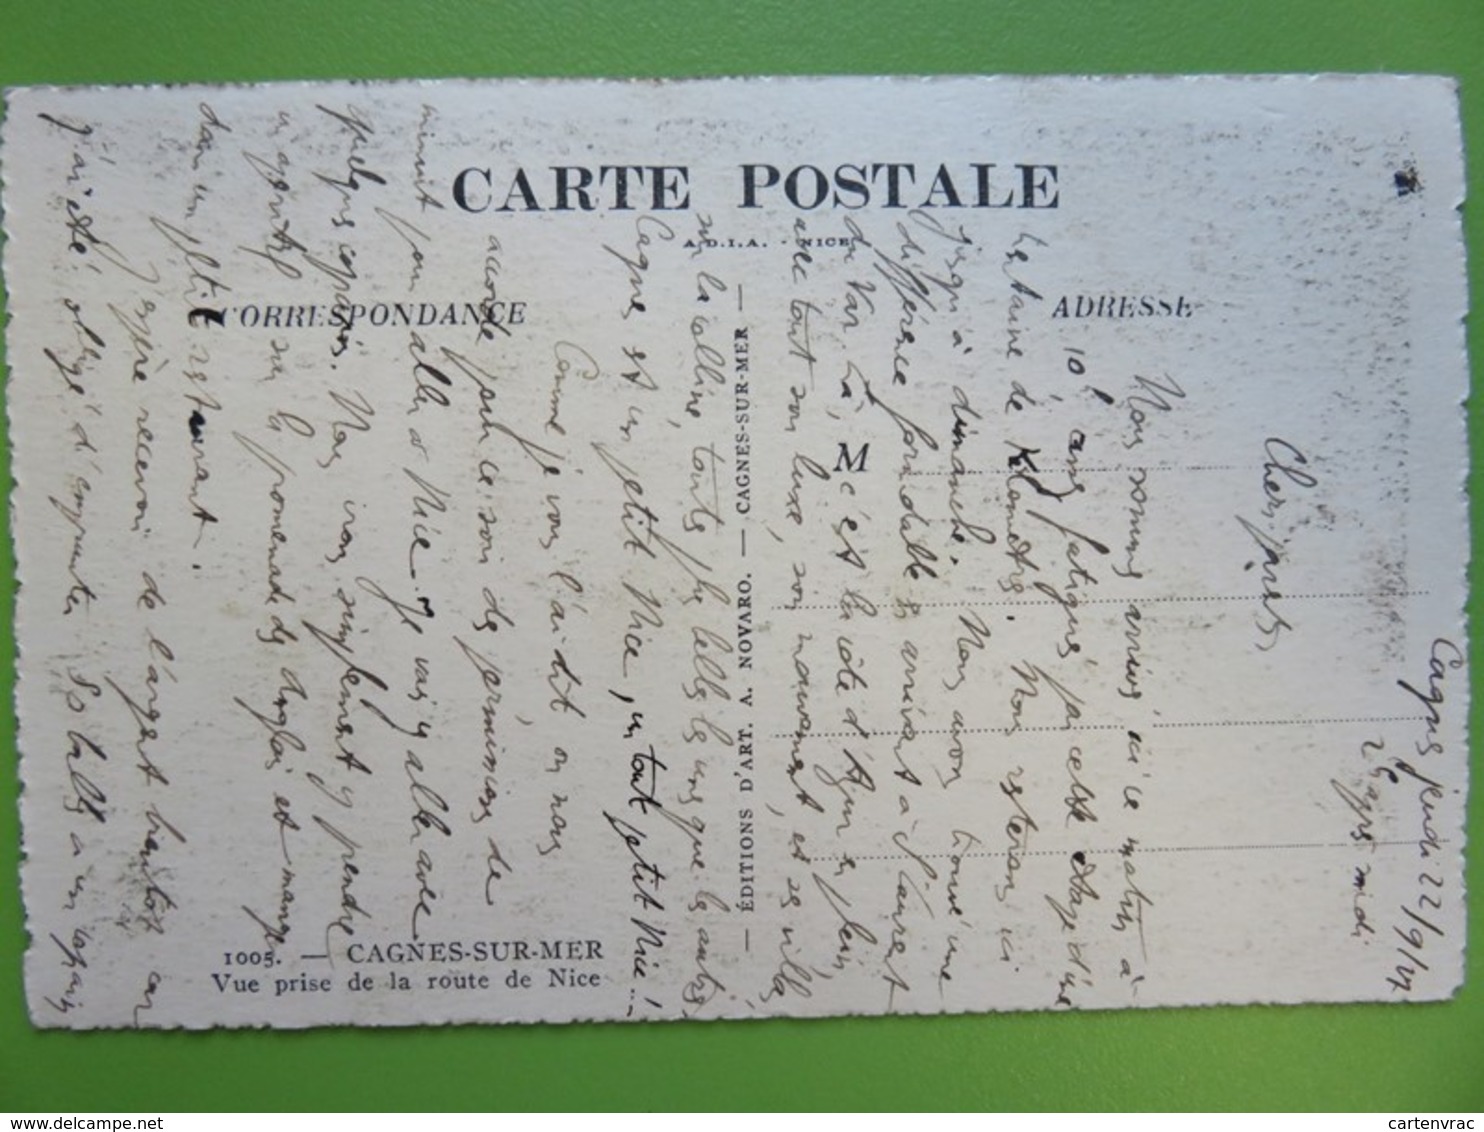 CARTE POSTALE
A.D.I.A. - NICE
CORRESPONDANCE
ADRESSE
M
ÉDITIONS D'ART. A. NOVARO. — CAGNES-SUR-MER —
1005. — CAGNES-SUR-MER
Vue prise de la route de Nice
Cagnes jeudi 22/9/
midi
Chers parents,
Nous sommes arrivés ici ce matin à
10h assez fatigués par cette étape d'une
trentaine de kilomètres. Nous resterons ici
jusqu'à dimanche. Nous avons trouvé une
différence formidable en arrivant à St Laurent
du Var. Là, c'est la côte d'Azur en plein
avec tout son luxe, son mouvement, et ses villas
sur la colline, toutes plus belles les unes que les autres
Cagnes est un petit Nice, un tout petit Nice!
Comme je vous l'ai dit on nous
accorde pour ce soir des permissions de
minuit pour aller à Nice. Je vais y aller avec
quelques copains. Nous irons simplement y prendre
un apéritif sur la promenade des Anglais et manger
dans un petit restaurant.
J'espère recevoir de l'argent bientôt car
j'ai été obligé d'emprunter 50 balles à un copain
cartenvrac